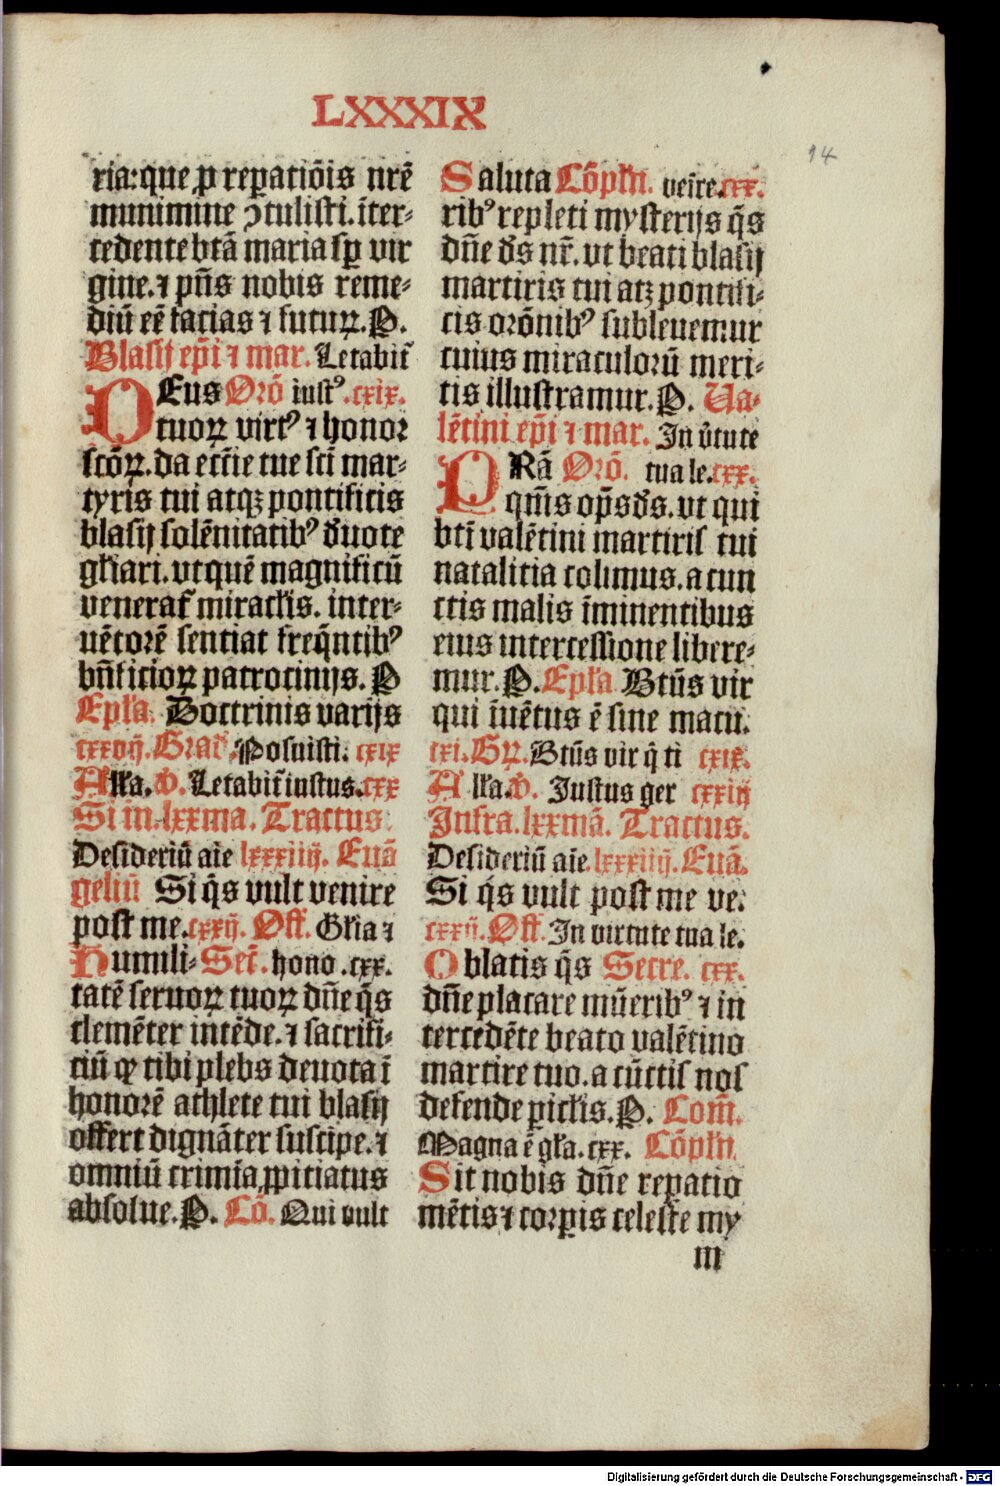 LXXXIX
14
ria: que ꝓ reꝑatiōis nrē
munimine ↄtulisti. īter⸗
cedente btā maria sꝑ vir
gine. ⁊ pn̄s nobis reme⸗
diū eē facias ⁊ futuꝝ. P.
Blasij ep̄i ⁊ mar. Letabit̄
DEus Orō iustꝰ. cxix.
tuoꝝ virtꝰ ⁊ honor
sctōꝝ. da eccīe tue scī mar⸗
tyris tui atqꝫ pontificis
blasij solēnitatibꝰ d̄uote
gl̄iari. vt quē magnificū
venerat᷑ miracl̄is. inter⸗
uētorē sentiat freq̄ntibꝰ
bn̄ficioꝝ patrocinijs. P
Epl̄a. Doctrinis varijs
cxxvij. Grad̄. Posuisti. cxix
All̄a. V̄. Letabit̄ iustus. cxx
Si in. lxxma. Tractus.
Desideriū aīe lxxxiiij. Euā
geliū Si q̄s vult venire
post me. cxxij. Off. Gl̄ia ⁊
Humili⸗ Sec̄t. hono. cxx.
tatē seruoꝝ tuoꝝ dn̄e q̄s
clemēter intēde. ⁊ sacrifi⸗
ciū qꝫ tibi plebs deuota ī
honorē athlete tui blasij
offert dignāter suscipe. ⁊
omniū crimīa ꝓpitiatus
absolue. P. Cō. Qui vult
Saluta Cōpl̄n. veīre. cxx.
ribꝰ repleti mysterijs q̄s
dn̄e d̄s nr̄. vt beati blasij
martiris tui atqꝫ pontifi⸗
cis orōnibꝰ subleuemur
cuius miraculorū meri⸗
tis illustramur. P. Va⸗
lētini ep̄i ⁊ mar. In v̄tute
PRā Orō. tua le. cxx.
qm̄s op̄s d̄s. vt qui
btī valētini martiris tui
natalitia colimus. a cun
ctis malis īminentibus
eius intercessione libere⸗
mur. P. Epl̄a Btūs vir
qui īuētus ē sine macu.
cxi. Gꝝ. Btūs vir q̄ ti cxix.
All̄a. V̄. Justus ger cxxiij
Infra. lxxmā. Tractus.
Desideriū aīe. lxxxiiij. Euā.
Si q̄s vult post me ve.
cxxij. Off. In virtute tua le.
Oblatis q̄s Secre. cxx.
dn̄e placare mūeribꝰ ⁊ in
tercedēte beato valētino
martire tuo. a cūctis nos
defende ꝑicl̄is. P. Com̄.
Magna ē gl̄a. cxx. Cōpl̄n
Sit nobis dn̄e reꝑatio
mētis ⁊ corꝑis celeste my
m
Digitalisierung gefördert durch die Deutsche Forschungsgemeinschaft - DFG